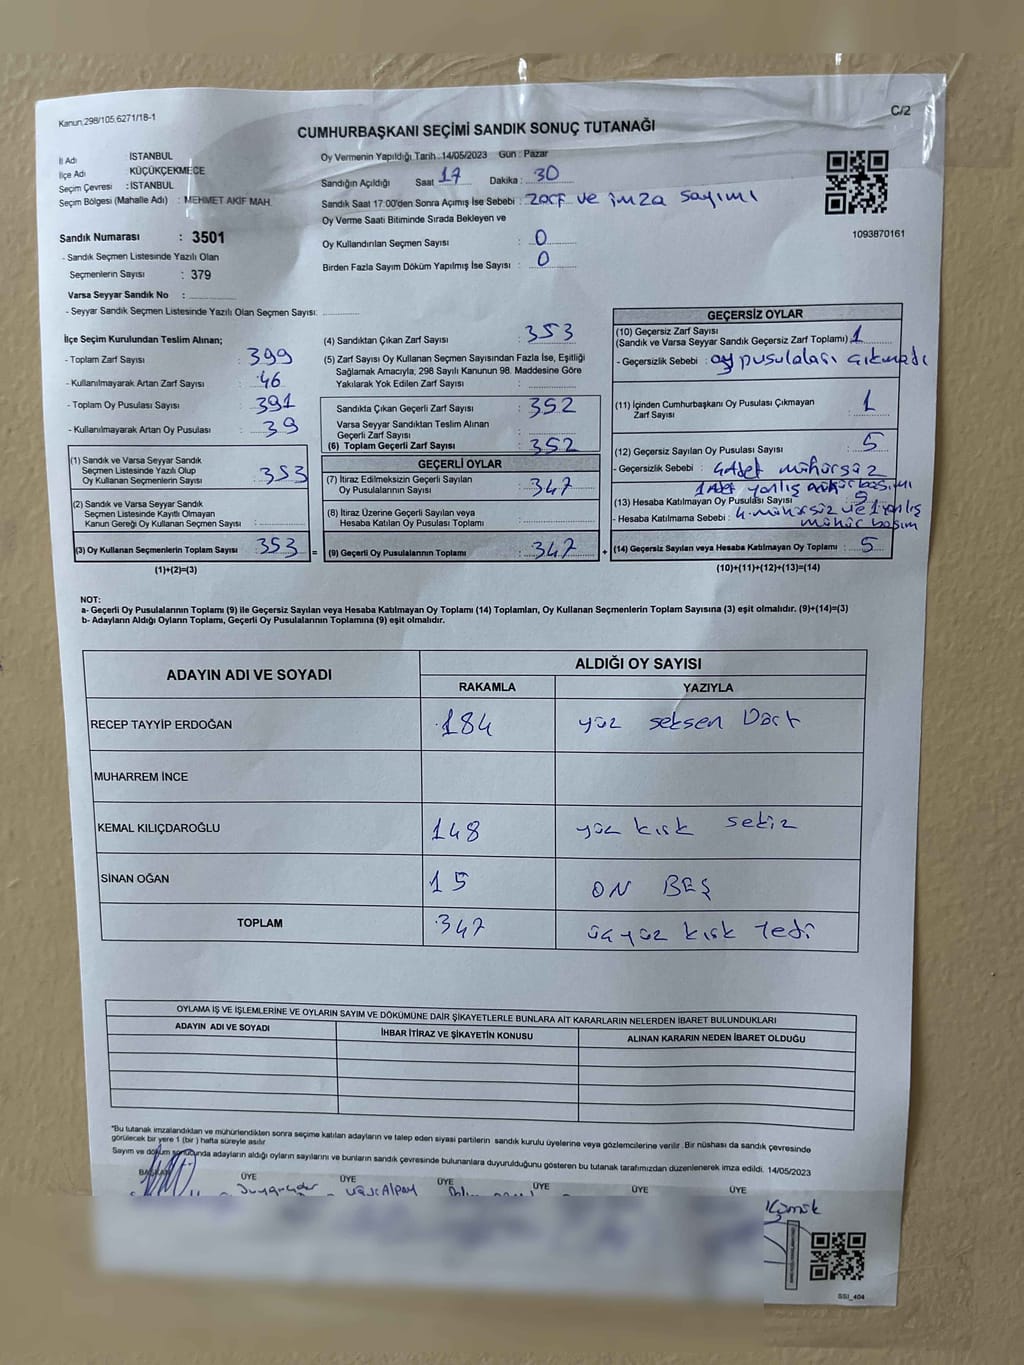 Kanun,298/105,6271/18-1
C/2
CUMHURBAŞKANI SEÇİMİ SANDIK SONUÇ TUTANAĞI
İl Adı : İSTANBUL
İlçe Adı : KÜÇÜKÇEKMECE
Seçim Çevresi : İSTANBUL
Seçim Bölgesi (Mahalle Adı) : MEHMET AKİF MAH.
Oy Vermenin Yapıldığı Tarih : 14/05/2023 Gün : Pazar
Sandığın Açıldığı Saat 17 Dakika : 30
Sandık Saat 17:00'den Sonra Açımış İse Sebebi : zarf ve imza sayımı
Oy Verme Saati Bitiminde Sırada Bekleyen ve
Oy Kullandırılan Seçmen Sayısı : 0
Birden Fazla Sayım Döküm Yapılmış İse Sayısı : 0
1093870161
Sandık Numarası : 3501
- Sandık Seçmen Listesinde Yazılı Olan
Seçmenlerin Sayısı : 379
Varsa Seyyar Sandık No :
- Seyyar Sandık Seçmen Listesinde Yazılı Olan Seçmen Sayısı:
İlçe Seçim Kurulundan Teslim Alınan;
- Toplam Zarf Sayısı : 399
- Kullanılmayarak Artan Zarf Sayısı : 46
- Toplam Oy Pusulası Sayısı : 391
- Kullanılmayarak Artan Oy Pusulası : 39
(1) Sandık ve Varsa Seyyar Sandık
Seçmen Listesinde Yazılı Olup
Oy Kullanan Seçmenlerin Sayısı : 353
(2) Sandık ve Varsa Seyyar Sandık
Seçmen Listesinde Kayıtlı Olmayan
Kanun Gereği Oy Kullanan Seçmen Sayısı :
(3) Oy Kullanan Seçmenlerin Toplam Sayısı : 353 =
(1)+(2)=(3)
(4) Sandıktan Çıkan Zarf Sayısı : 353
(5) Zarf Sayısı Oy Kullanan Seçmen Sayısından Fazla İse, Eşitliği
Sağlamak Amacıyla, 298 Sayılı Kanunun 98. Maddesine Göre
Yakılarak Yok Edilen Zarf Sayısı :
Sandıkta Çıkan Geçerli Zarf Sayısı : 352
Varsa Seyyar Sandıktan Teslim Alınan
Geçerli Zarf Sayısı :
(6) Toplam Geçerli Zarf Sayısı : 352
GEÇERLİ OYLAR
(7) İtiraz Edilmeksizin Geçerli Sayılan
Oy Pusulalarının Sayısı : 347
(8) İtiraz Üzerine Geçerli Sayılan veya
Hesaba Katılan Oy Pusulası Toplamı :
(9) Geçerli Oy Pusulalarının Toplamı : 347 +
GEÇERSİZ OYLAR
(10) Geçersiz Zarf Sayısı
(Sandık ve Varsa Seyyar Sandık Geçersiz Zarf Toplamı) : 1
- Geçersizlik Sebebi : oy pusulaları çıkmadı
(11) İçinden Cumhurbaşkanı Oy Pusulası Çıkmayan
Zarf Sayısı : 1
(12) Geçersiz Sayılan Oy Pusulası Sayısı : 5
- Geçersizlik Sebebi : 4 Adet mühürsüz
1 Adet yanlış mühür basımı
(13) Hesaba Katılmayan Oy Pusulası Sayısı : 5
- Hesaba Katılmama Sebebi : 4 mühürsüz ve 1 yanlış
mühür basım
(14) Geçersiz Sayılan veya Hesaba Katılmayan Oy Toplamı : 5
(10)+(11)+(12)+(13)=(14)
NOT:
a- Geçerli Oy Pusulalarının Toplamı (9) ile Geçersiz Sayılan veya Hesaba Katılmayan Oy Toplamı (14) Toplamları, Oy Kullanan Seçmenlerin Toplam Sayısına (3) eşit olmalıdır. (9)+(14)=(3)
b- Adayların Aldığı Oyların Toplamı, Geçerli Oy Pusulalarının Toplamına (9) eşit olmalıdır.
ADAYIN ADI VE SOYADI ALDIĞI OY SAYISI
RAKAMLA YAZIYLA
RECEP TAYYİP ERDOĞAN 184 yüz seksen Dört
MUHARREM İNCE
KEMAL KILIÇDAROĞLU 148 yüz kırk sekiz
SİNAN OĞAN 15 ON BEŞ
TOPLAM 347 üç yüz kırk Yedi
OYLAMA İŞ VE İŞLEMLERİNE VE OYLARIN SAYIM VE DÖKÜMÜNE DAİR ŞİKAYETLERLE BUNLARA AİT KARARLARIN NELERDEN İBARET BULUNDUKLARI
ADAYIN ADI VE SOYADI İHBAR İTİRAZ VE ŞİKAYETİN KONUSU ALINAN KARARIN NEDEN İBARET OLDUĞU
*Bu tutanak imzalandıktan ve mühürlendikten sonra seçime katılan adayların ve talep eden siyasi partilerin sandık kurulu üyelerine veya gözlemcilerine verilir. Bir nüshası da sandık çevresinde
görülecek bir yere 1 (bir ) hafta süreyle asılır
Sayım ve döküm sonucunda adayların aldığı oyların sayılarını ve bunların sandık çevresinde bulunanlara duyurulduğunu gösteren bu tutanak tarafımızdan düzenlenerek imza edildi. 14/05/2023
BAŞKAN ÜYE ÜYE ÜYE ÜYE ÜYE ÜYE
SSI_404